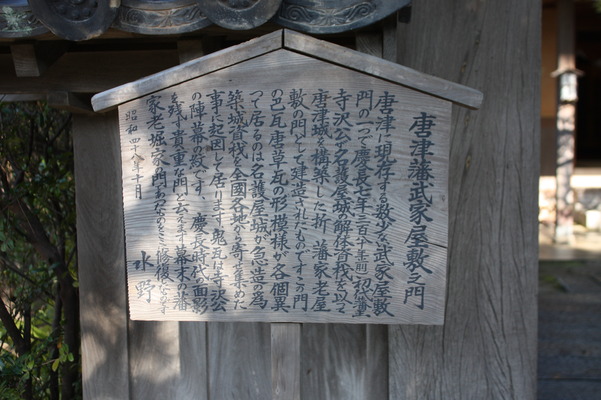 唐津藩武家屋敷之門
唐津に現存する数少い武家屋敷
門の一つで慶長七年(三百七十年前)初代藩主
寺沢公が名護屋城の解体資材を以て
唐津城を構築した折 藩家老屋
敷の門として建造されたものですこの門
の巴瓦唐草瓦の形模様が各個異
って居るのは名護屋城が急造の為
築城資材を全国各地から寄せ集めた
事に起因して居ります 鬼瓦は寺沢公
の陣幕の紋です、 慶長時代の面影
を残す貴重な門と云えます幕末の藩
家老堀家の門
修復
昭和四十八年十月
水野